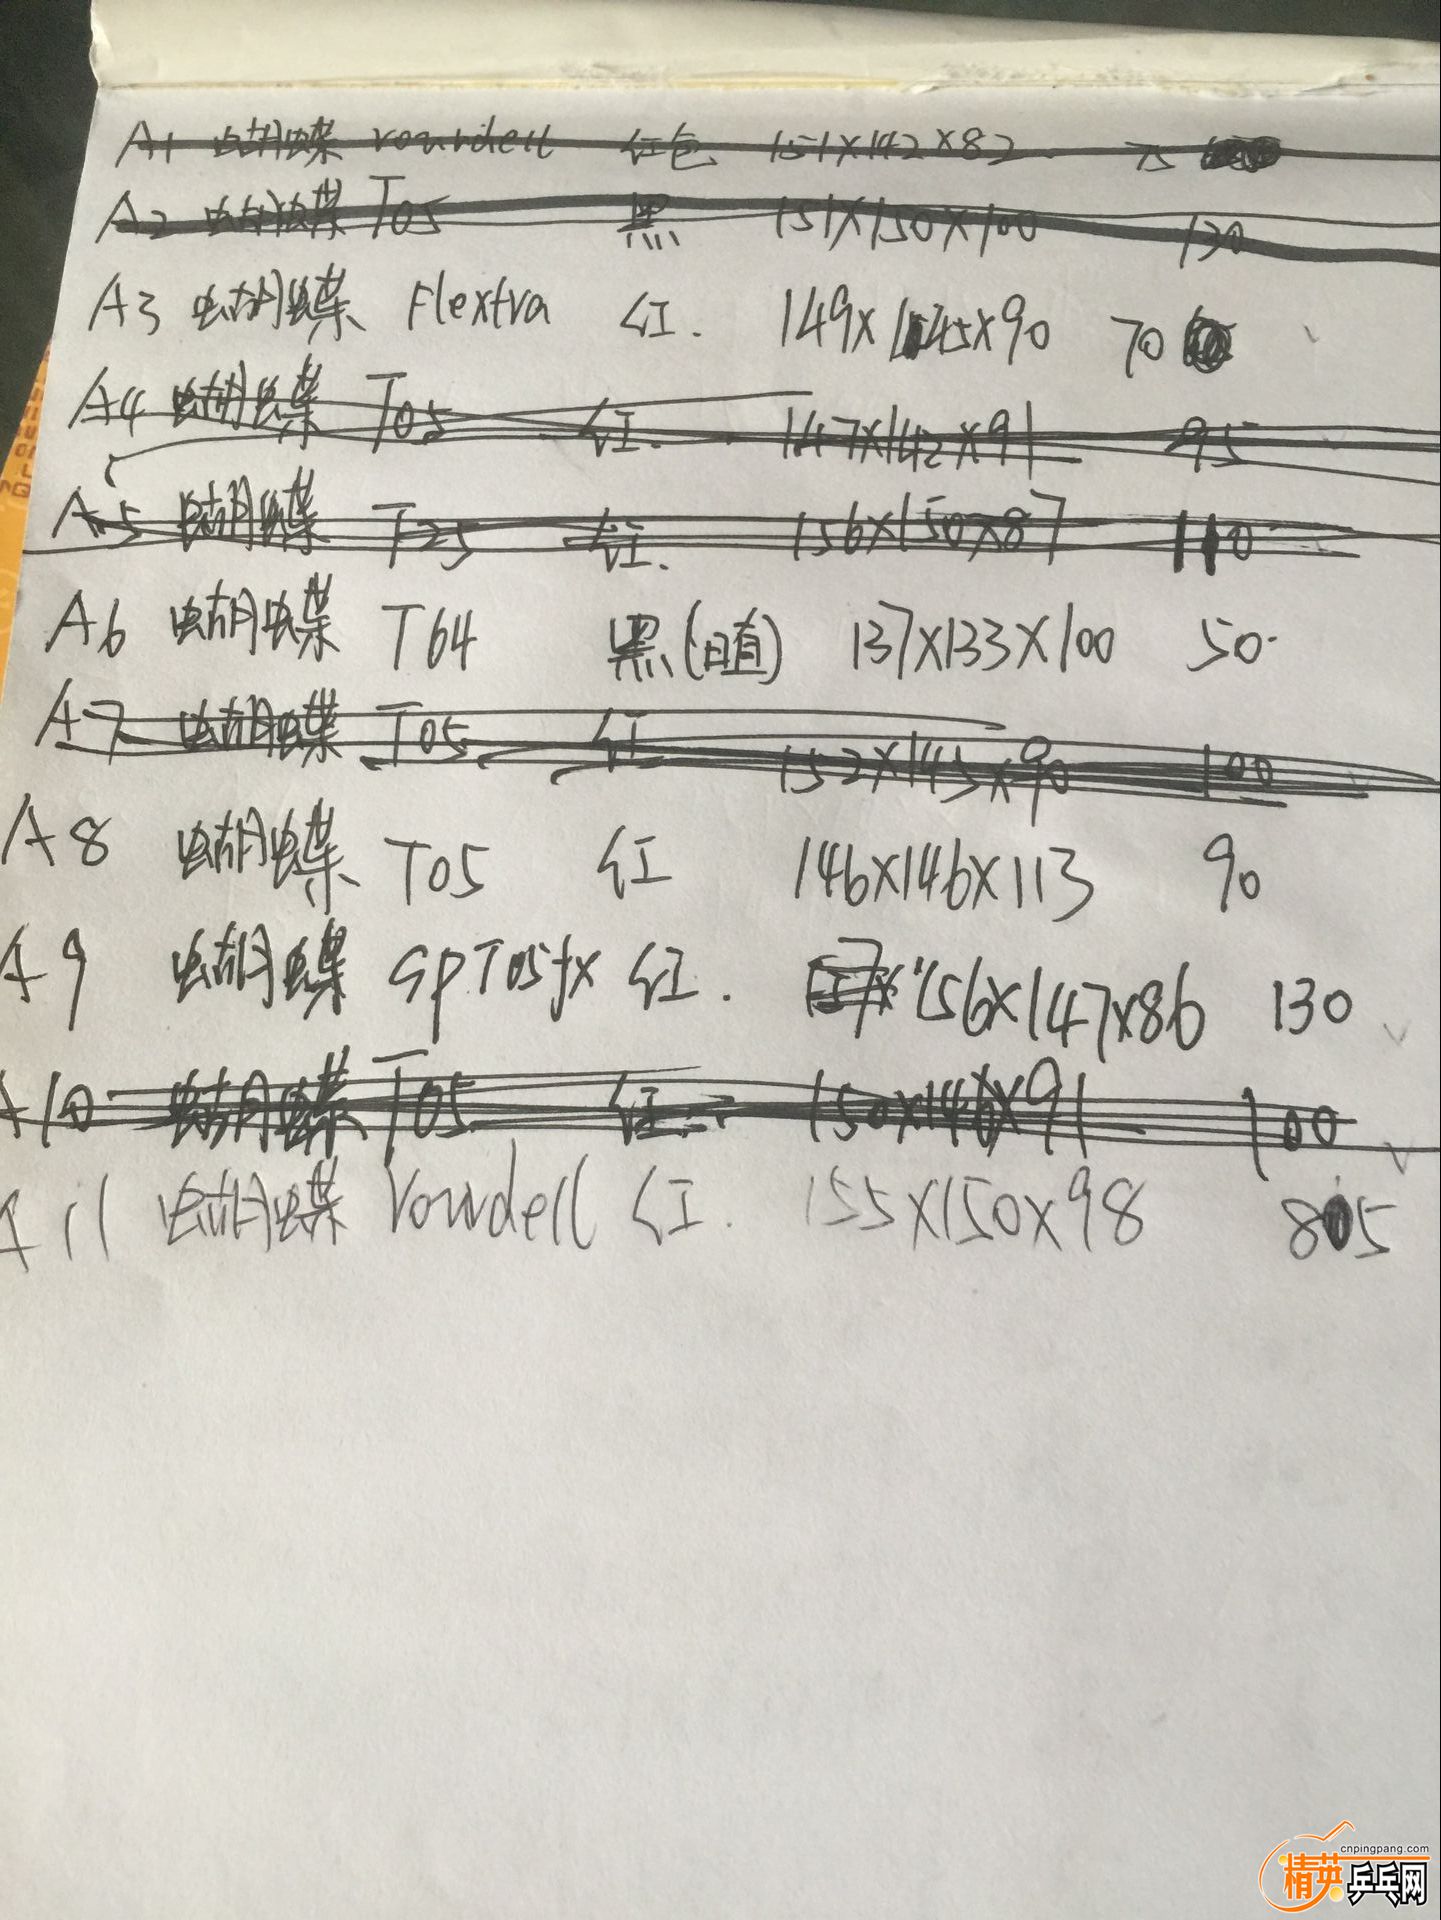 A1 蝴蝶 roundell 红色 151X142X82 75
A2 蝴蝶 T05 黑 151X150X100 130
A3 蝴蝶 Flextra 红. 149X145X90 70
A4 蝴蝶 T05 红. 147X142X91 95
A5 蝴蝶 T25 红. 156X150X87 110
A6 蝴蝶 T64 黑( ) 137X133X100 50
A7 蝴蝶 T05 红 152X145X90 100
A8 蝴蝶 T05 红 146X146X113 90
A9 蝴蝶 GpT05fx 红. 156X147X86 130
A10 蝴蝶 T05 红. 150X146X91 100
A11 蝴蝶 roundell 红. 155X150X98 85
cnpingpang.com
精英乒乓网